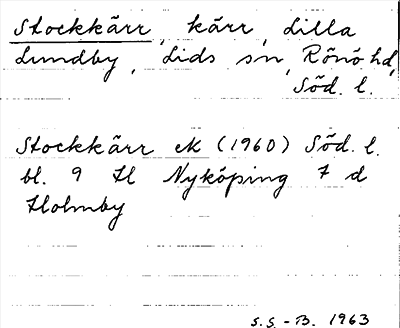 Stockkärr, kärr, Lilla
Lundby, Lids sn, Rönö hd,
Söd. l.
Stockkärr ek (1960) Söd. l.
bl. 9 H Nyköping 7 d
Holmby
S.S. - B. 1963